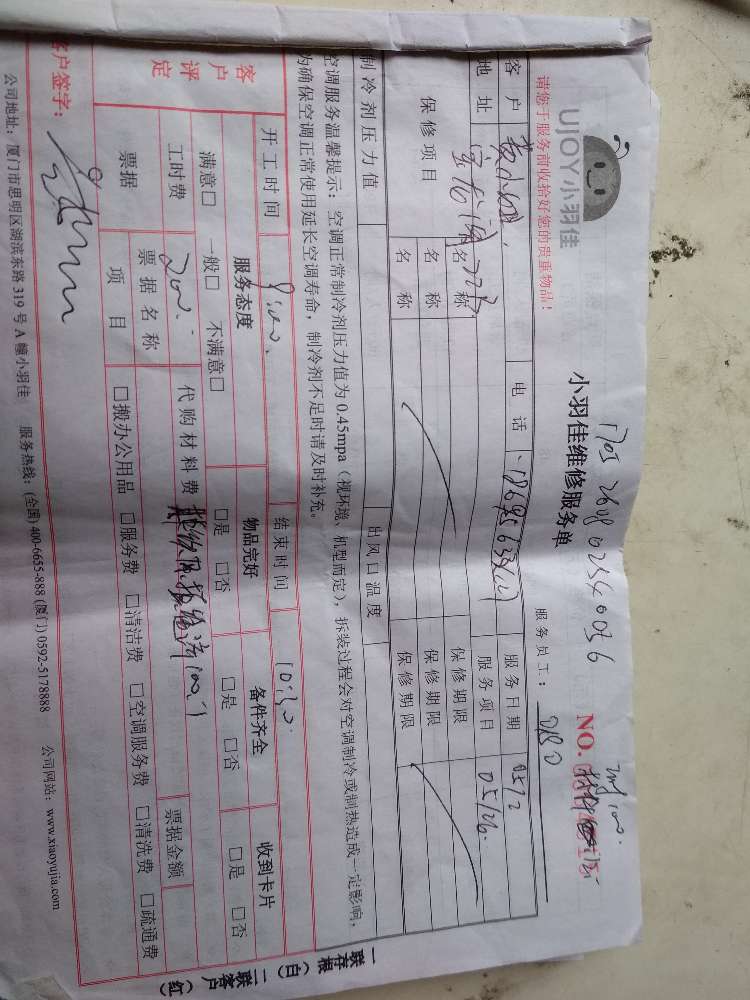 UJOY小羽佳
请您于服务前收拾好您的贵重物品!
小羽佳维修服务单
NO.
服务员工:
客户 电话 服务日期
地址 服务项目 05/26.
保修项目 名称 保修期限
名称 保修期限
名称 保修期限
制冷剂压力值 出风口温度
空调服务温馨提示:空调正常制冷剂压力值为0.45mpa(视环境、机型而定),拆装过程会对空调制冷或制热造成一定影响,
为确保空调正常使用延长空调寿命,制冷剂不足时请及时补充。
客户评定
开工时间 9:00. 结束时间 10:30.
服务态度 物品完好 备件齐全 收到卡片
满意□ 一般□ 不满意□ □是 □否 □是 □否 □是 □否
工时费 200. 代购材料费
票据 票据名称 票据金额
项目 □搬办公用品 □服务费 □清洁费 □空调服务费 □清洗费 □疏通费
客户签字:
公司地址:厦门市思明区湖滨东路319号A幢小羽佳 服务热线:(全国)400-6655-888 (厦门)0592-5178888 公司网站:www.xiaoyujia.com
一联存根(白) 二联客户(红)